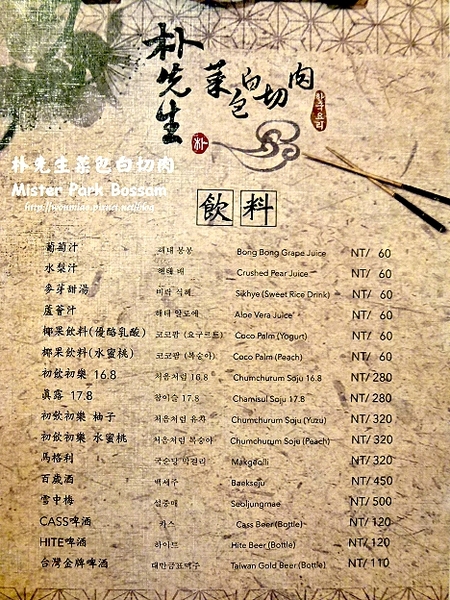 朴先生
菜包白切肉
한국요리
朴
朴先生菜包白切肉
Mister Park Bossam
飲料
葡萄汁 봉봉 Bong Bong Grape Juice NT/ 60
水梨汁 배 Crushed Pear Juice NT/ 60
麥芽甜湯 비락 식혜 Sikhye (Sweet Rice Drink) NT/ 60
蘆薈汁 해태 알로에 Aloe Vera Juice NT/ 60
椰果飲料(優酪乳酸) 코코팜 (요구르트) Coco Palm (Yogurt) NT/ 60
椰果飲料(水蜜桃) 코코팜 (복숭아) Coco Palm (Peach) NT/ 60
初飲初樂 16.8 처음처럼 16.8 Chumchurum Soju 16.8 NT/ 280
真露 17.8 참이슬 17.8 Chamisul Soju 17.8 NT/ 280
初飲初樂 柚子 처음처럼 유자 Chumchurum Soju (Yuzu) NT/ 320
初飲初樂 水蜜桃 처음처럼 복숭아 Chumchurum Soju (Peach) NT/ 320
馬格利 국순당 막걸리 Makgeolli NT/ 320
百歲酒 백세주 Baekseju NT/ 450
雪中梅 설중매 Seoljungmae NT/ 500
CASS啤酒 카스 Cass Beer (Bottle) NT/ 120
HITE啤酒 하이트 Hite Beer (Bottle) NT/ 120
台灣金牌啤酒 대만금표맥주 Taiwan Gold Beer (Bottle) NT/ 110